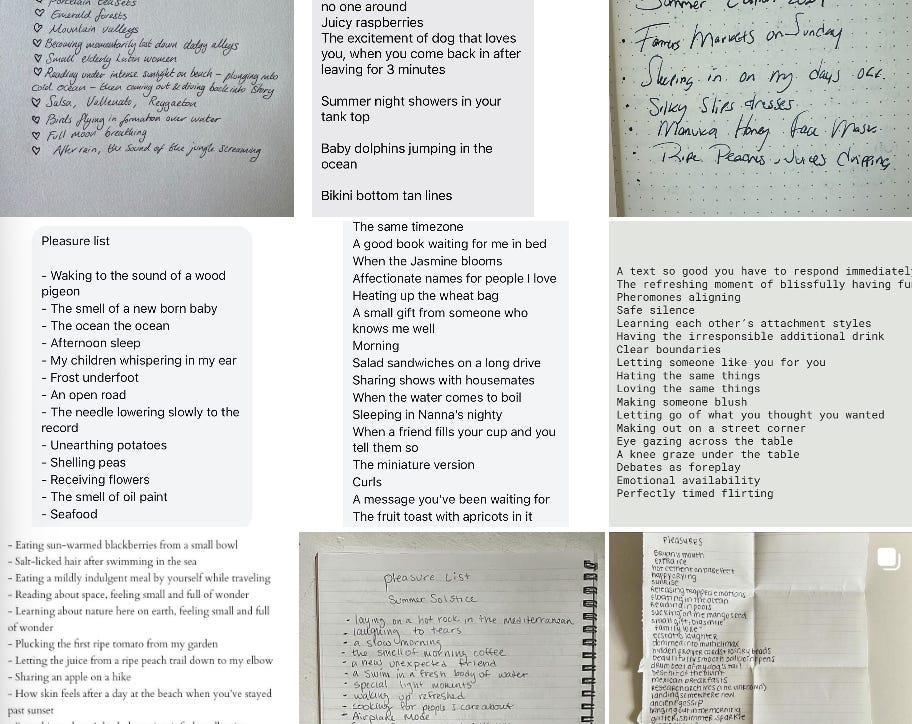 Porcelain teasets
Emerald forests
Mountain valleys
Becoming momentarily lost down dodgy alleys
Small elderly Latin women
Reading under intense sunlight on beach - plunging into
cold ocean - then coming out & diving back into story
Salsa, Vallenato, Reggaeton
Birds flying in formation over water
Full moon breathing
After rain, the sound of the jungle screaming
no one around
Juicy raspberries
The excitement of dog that loves
you, when you come back in after
leaving for 3 minutes
Summer night showers in your
tank top
Baby dolphins jumping in the
ocean
Bikini bottom tan lines
Summer
Farmers Markets on Sunday
Sleeping in on my days off.
Silky Slips dresses
Manuka Honey Face Mask
Ripe Peaches, Juices dripping
Pleasure list
- Waking to the sound of a wood
pigeon
- The smell of a new born baby
- The ocean the ocean
- Afternoon sleep
- My children whispering in my ear
- Frost underfoot
- An open road
- The needle lowering slowly to the
record
- Unearthing potatoes
- Shelling peas
- Receiving flowers
- The smell of oil paint
- Seafood
The same timezone
A good book waiting for me in bed
When the Jasmine blooms
Affectionate names for people I love
Heating up the wheat bag
A small gift from someone who
knows me well
Morning
Salad sandwiches on a long drive
Sharing shows with housemates
When the water comes to boil
Sleeping in Nanna's nighty
When a friend fills your cup and you
tell them so
The miniature version
Curls
A message you've been waiting for
The fruit toast with apricots in it
A text so good you have to respond immediately
The refreshing moment of blissfully having fu
Pheromones aligning
Safe silence
Learning each other's attachment styles
Having the irresponsible additional drink
Clear boundaries
Letting someone like you for you
Hating the same things
Loving the same things
Making someone blush
Letting go of what you thought you wanted
Making out on a street corner
Eye gazing across the table
A knee graze under the table
Debates as foreplay
Emotional availability
Perfectly timed flirting
- Eating sun-warmed blackberries from a small bowl
- Salt-licked hair after swimming in the sea
- Eating a mildly indulgent meal by yourself while traveling
- Reading about space, feeling small and full of wonder
- Learning about nature here on earth, feeling small and full
of wonder
- Plucking the first ripe tomato from my garden
- Letting the juice from a ripe peach trail down to my elbow
- Sharing an apple on a hike
- How skin feels after a day at the beach when you've stayed
past sunset
Pleasure List
Summer Solstice
- laying on a hot rock in the Mediterranean
- laughing to tears
- a slow morning
- the smell of morning coffee
- a new unexpected friend
- a swim in a fresh body of water
- special light moments
- waking up refreshed
- cooking for people I care about
- Airplane Mode
Pleasures
extra ice
happy crying
sunrise
releasing trapped emotions
floating in the ocean
Reading in pools
sucking on the mango seed
family love
ecstatic laughter
mexican breakfasts
landing somewhere new
ancient gossip
glitter, shimmer, sparkle